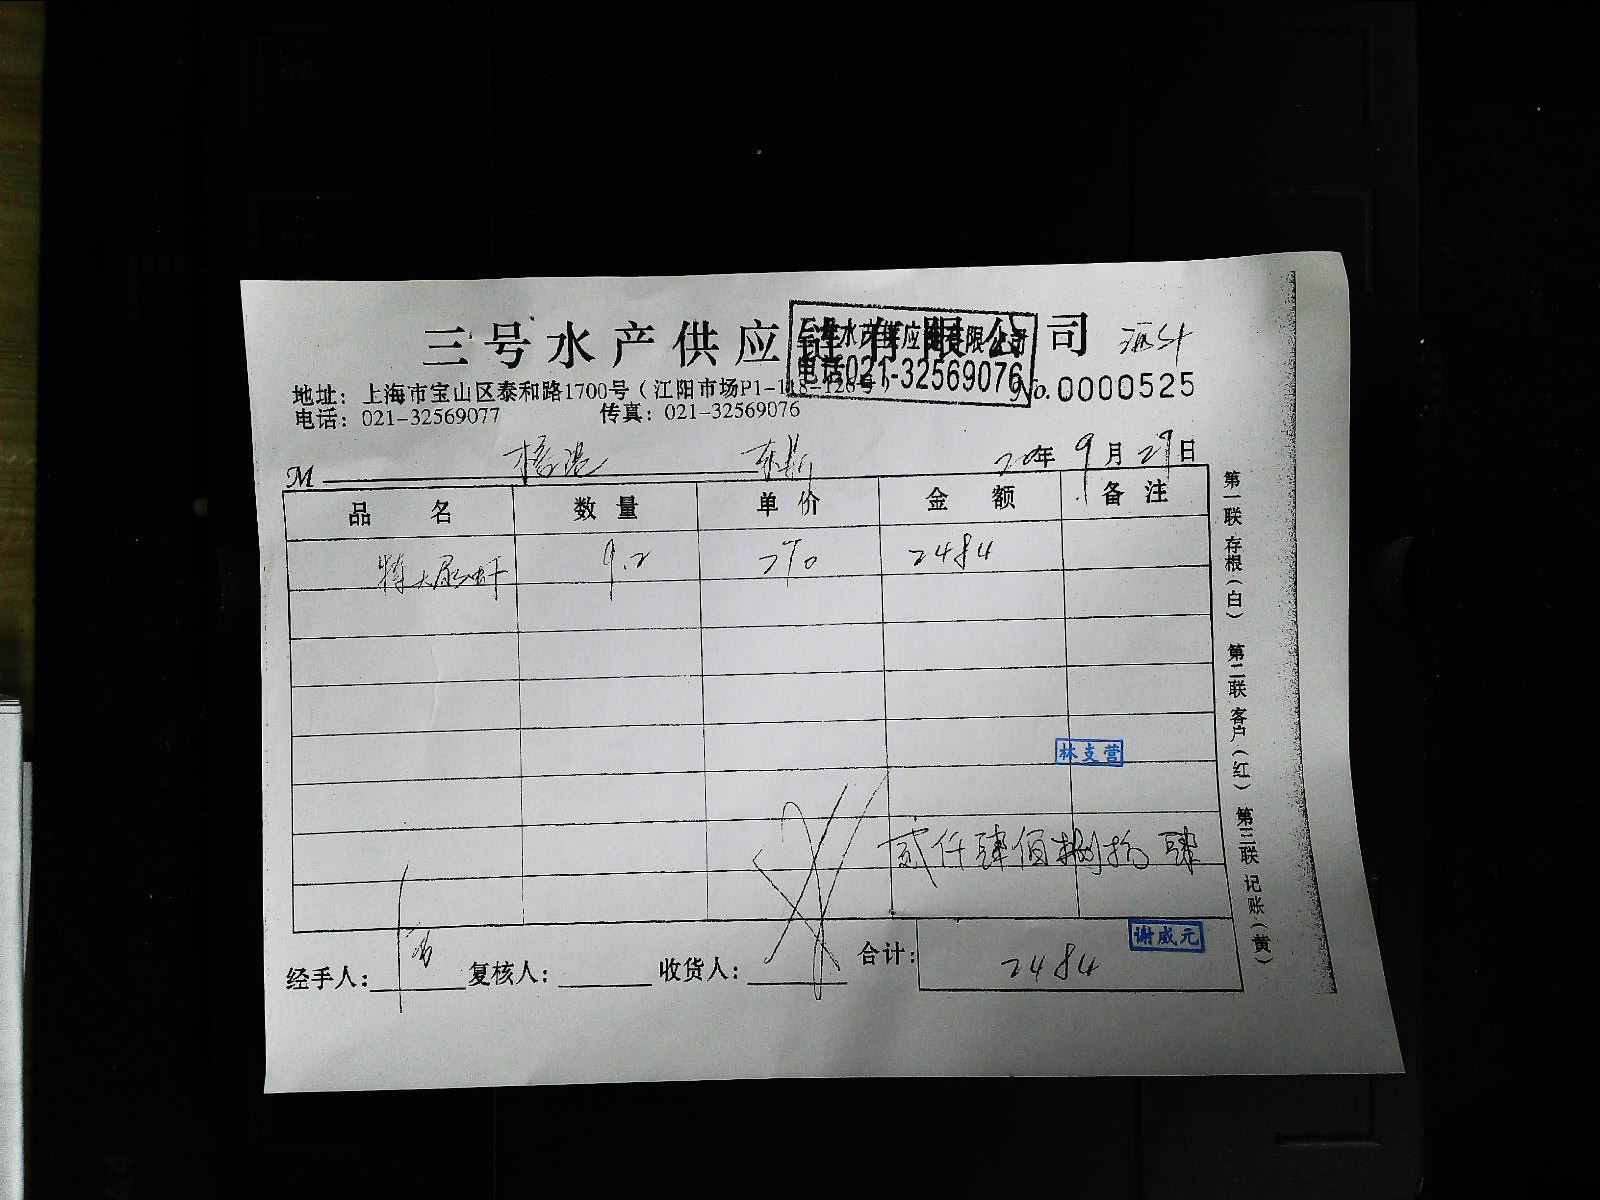 三号水产供应链有限公司
电话021-32569076
地址：上海市宝山区泰和路1700号（江阳市场P1-118-126号）
No.0000525
电话：021-32569077 传真：021-32569076
M 20年9月29日
品名 数量 单价 金额 备注
特大尿虾 9.2 270 2484
林支营
贰仟肆佰捌拾肆
谢威元
经手人： 复核人： 收货人： 合计：2484
第一联存根（白） 第二联客户（红） 第三联记账（黄）